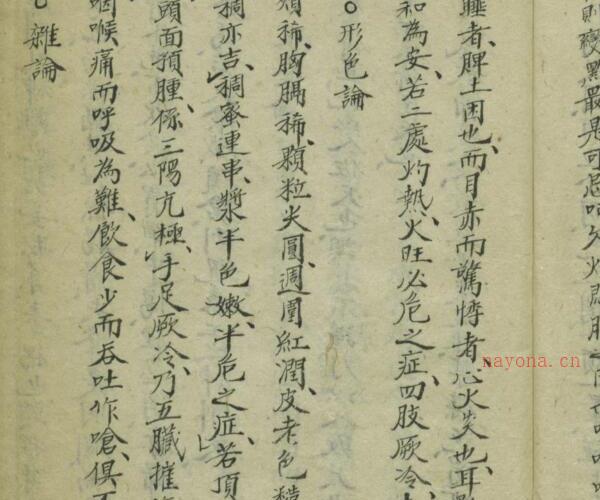 則變黑最是可忌
睡者、脾土困也、而目赤而驚悸者、心火炎也、耳
和為安、若二處灼熱、火旺必危之症、四肢厥冷
○形色論
稀、胸膈稀、顆粒尖圓、週圍紅潤、皮老色
稠亦吉、稠蜜連串、漿半色嫩、半危之症、若頂
頭面預腫、係三陽亢極、手足厥冷、乃五臟摧
咽喉痛而呼吸為難、飲食少而吞吐作嗆、俱
○雜論
nayona.cn